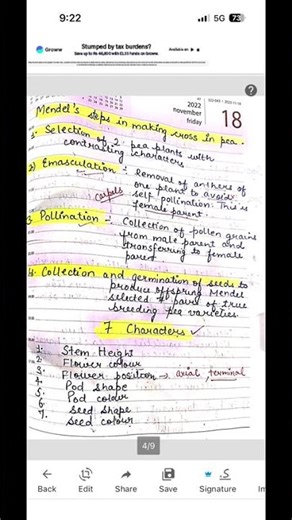 9:22
5G 73
Groww
Stumped by tax burdens?
2022
november
friday
18
Mendel's steps in making cross in pea.
Selection of 2 pea plants with
contrasting characters
2) Emasculation :- Removal of anthers of
one plant to avoid
self pollination. This is
female parent.
carpels
3. Pollination :- Collection of pollen grains
from male parent and
transferring to female
parent
4. Collection and germination of seeds to
produce offspring Mendel
selected 14 pairs of true
breeding pea varieties.
7 Characters ✓
1. Stem Height
2. Flower colour
3. Flower position → axial, terminal
4. Pod shape
5. Pod colour
6. Seed shape
7. Seed colour
4/9
Back
Edit
Share
Save
Signature